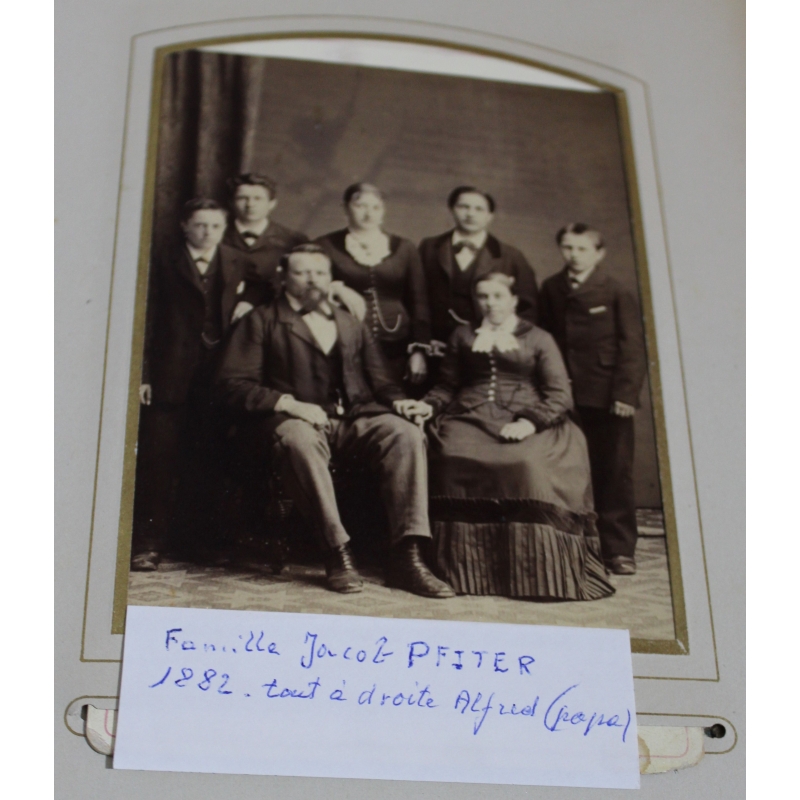 Famille Jacob PFITER
1882. tout à droite Alfred (papa)